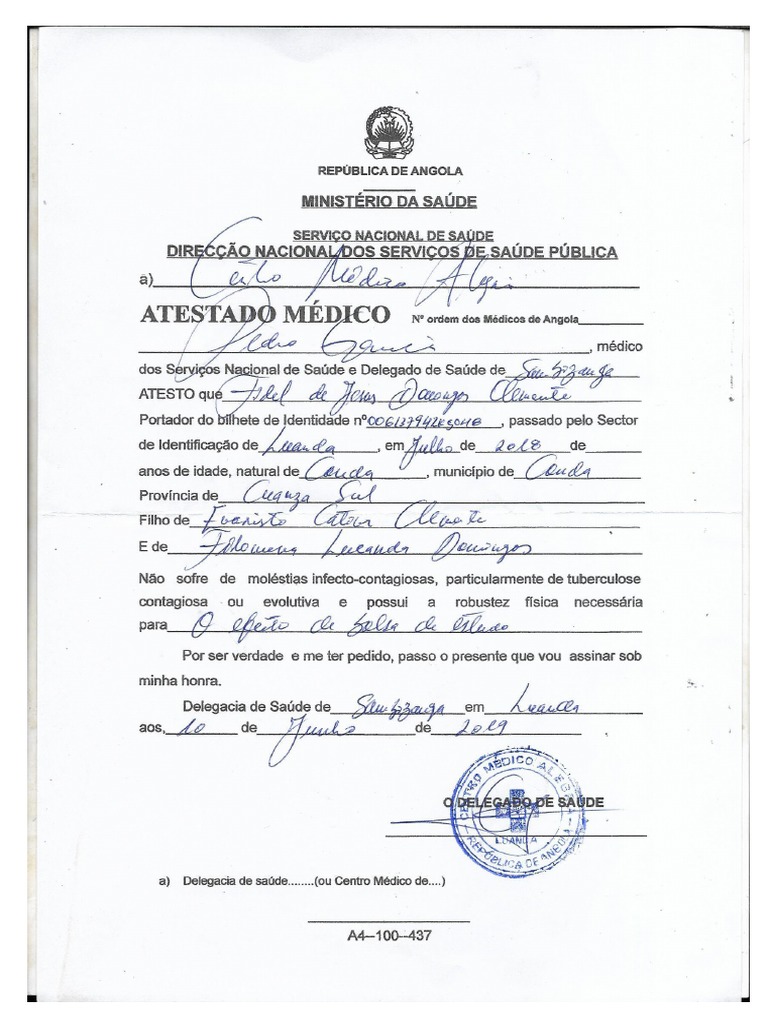 REPÚBLICA DE ANGOLA
MINISTÉRIO DA SAÚDE
SERVIÇO NACIONAL DE SAÚDE
DIRECÇÃO NACIONAL DOS SERVIÇOS DE SAÚDE PÚBLICA
a) Centro Médico Alegria
ATESTADO MÉDICO Nº ordem dos Médicos de Angola
Pedro Garcia, médico
dos Serviços Nacional de Saúde e Delegado de Saúde de Sambizanga
ATESTO que Fidel de Jesus Domingos Clemente
Portador do bilhete de Identidade nº, passado pelo Sector
de Identificação de Luanda, em Julho de 2018 de
anos de idade, natural de Conda, município de Conda
Província de Cuanza Sul
Filho de Evaristo Clemente
E de Filomena Lucanda Domingos
Não sofre de moléstias infecto-contagiosas, particularmente de tuberculose
contagiosa ou evolutiva e possui a robustez física necessária
para O efeito de bolsa de estudo
Por ser verdade e me ter pedido, passo o presente que vou assinar sob
minha honra.
Delegacia de Saúde de Sambizanga em Luanda
aos, 10 de Junho de 2019
CENTRO MÉDICO
O DELEGADO DE SAÚDE
LUANDA
REPÚBLICA DE ANGOLA
a) Delegacia de saúde........(ou Centro Médico de....)
A4--100--437